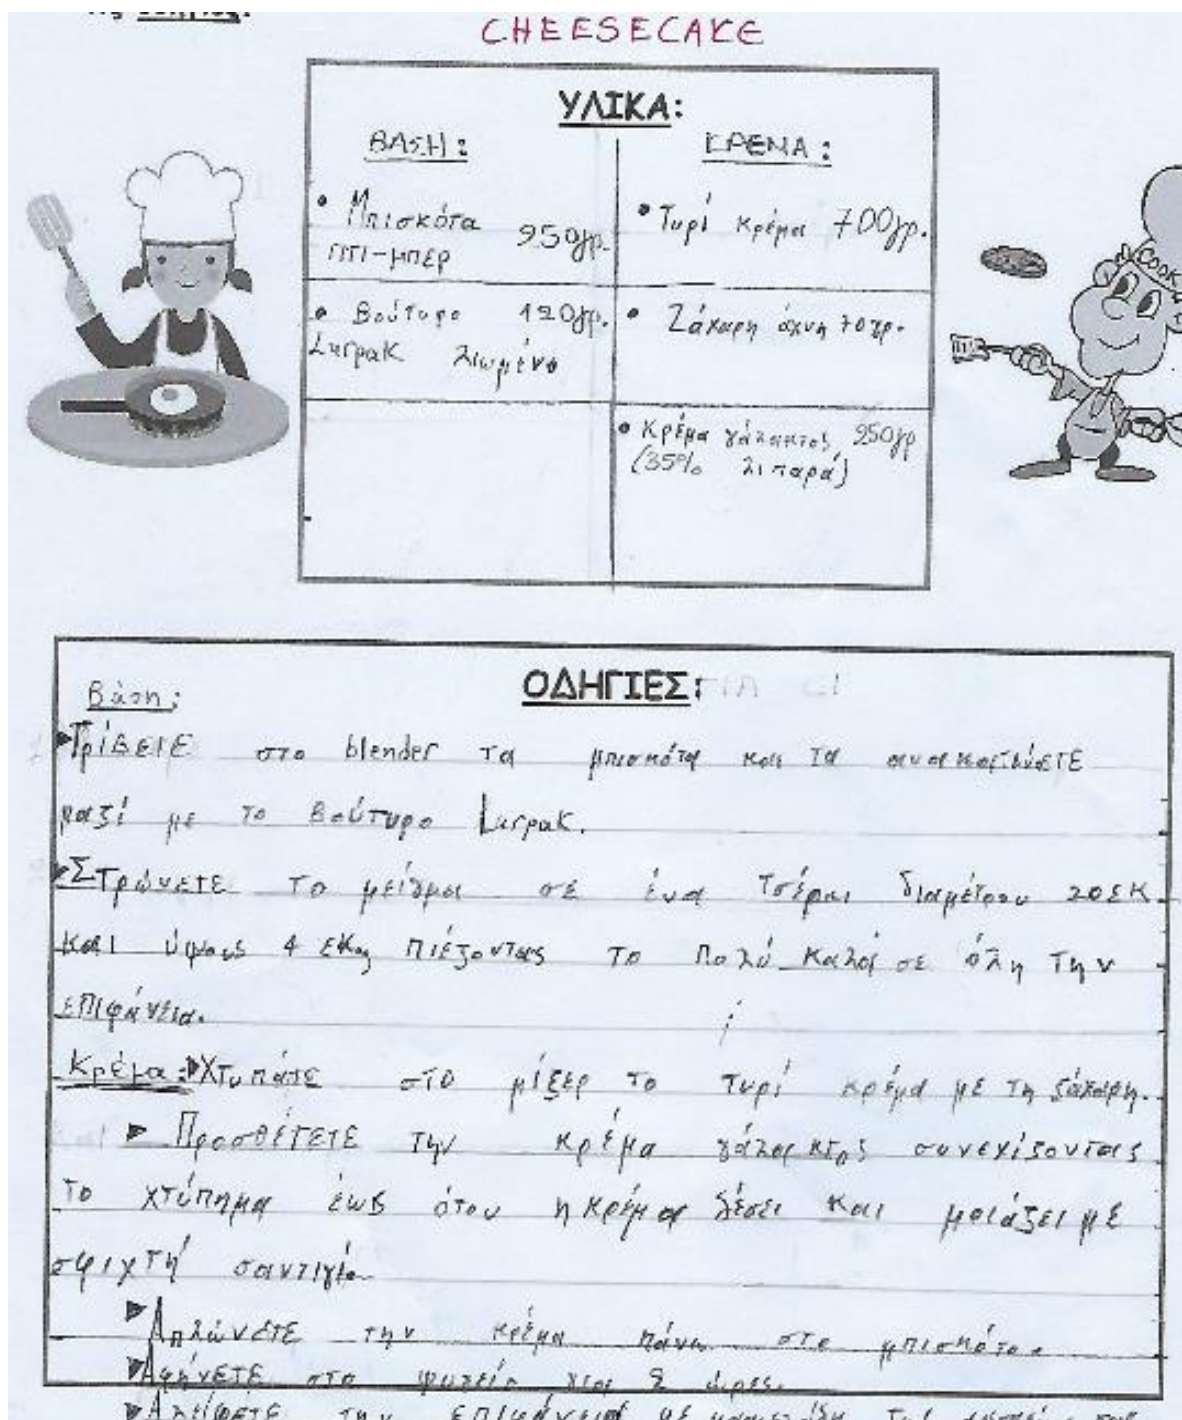 της οδηγίες:
CHEESECAKE
ΥΛΙΚΑ:
ΒΑΣΗ: ΚΡΕΜΑ:
• Μπισκότα πτι-μπερ 250γρ.
• Τυρί κρέμα 700γρ.
• Βούτυρο Lurpak λιωμένο 120γρ.
• Ζάχαρη άχνη 70γρ.
• Κρέμα γάλακτος 250γρ
(35% λιπαρά)
COOK
ΟΔΗΓΙΕΣ:
Βάση:
Τρίβετε στο blender τα μπισκότα και τα ανακατεύετε
μαζί με το Βούτυρο Lurpak.
Στρώνετε το μείγμα σέ ένα τσέρκι διαμέτρου 20ΣΚ
και ύψους 4 εκ πιέζοντας το πολύ καλά σε όλη την
επιφάνεια.
Κρέμα: Χτυπάτε στο μίξερ το τυρί κρέμα με τη ζάχαρη.
Προσθέτετε την κρέμα γάλακτος συνεχίζοντας
το χτύπημα έως ότου η κρέμα δέσει και μοιάζει με
σφιχτή σαντιγί.
Απλώνετε την κρέμα πάνω στο μπισκότο.
Αφήνετε στο ψυγείο για 2 ώρες.
Αλείφετε την επιφάνεια με μαρμελάδα της